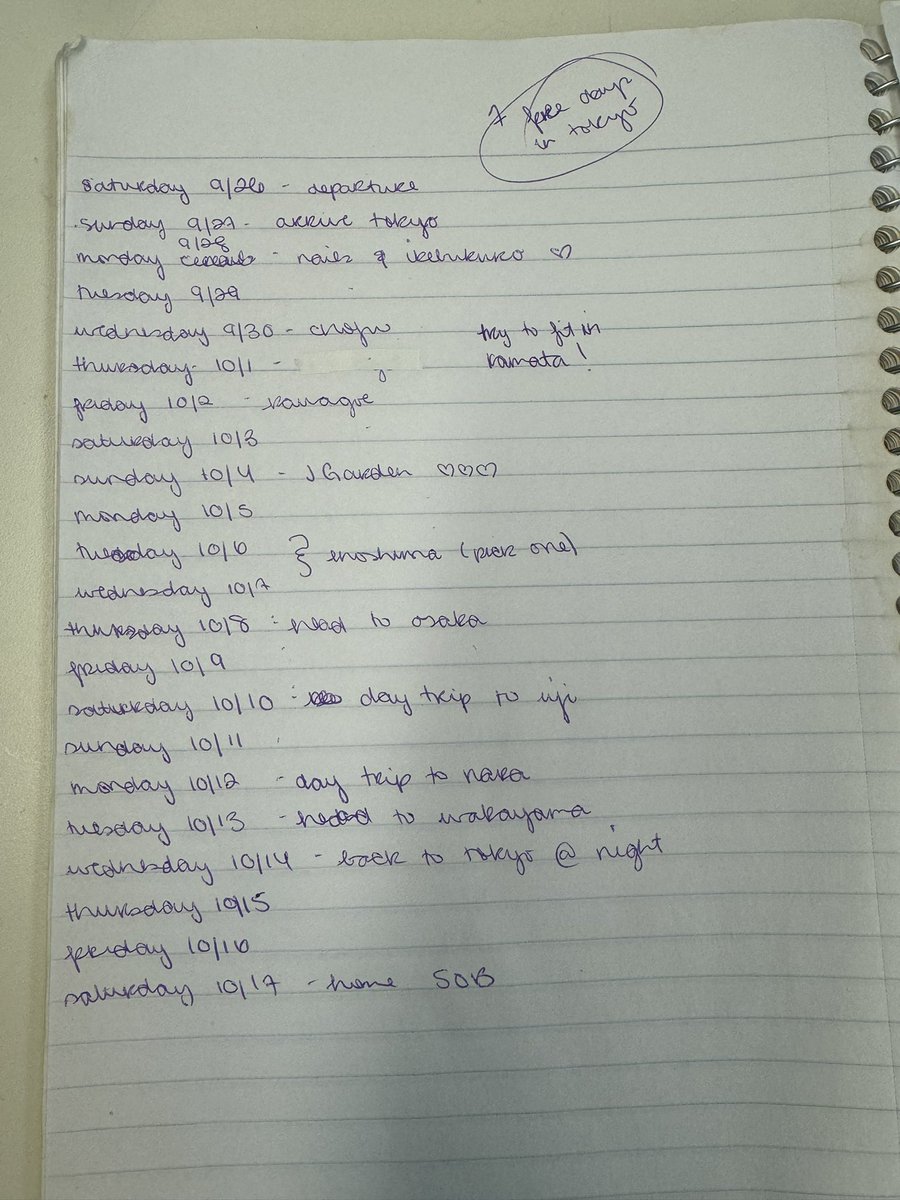 7 free days
in tokyo
saturday 9/26 - departure
sunday 9/27 - arrive tokyo
9/28
monday - nails & ikebukuro ♡
tuesday 9/29
wednesday 9/30 - chofu
try to fit in
kamata!
thursday 10/1 -
friday 10/2 - kawagoe
saturday 10/3
sunday 10/4 - J Garden ♡♡♡
monday 10/5
tuesday 10/6 } enoshima (pick one)
wednesday 10/7
thursday 10/8 : head to osaka
friday 10/9
saturday 10/10 : day trip to uji
sunday 10/11
monday 10/12 - day trip to nara
tuesday 10/13 - head to wakayama
wednesday 10/14 - back to tokyo @ night
thursday 10/15
friday 10/16
saturday 10/17 - home SOB